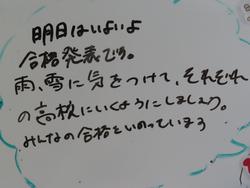 明日はいよいよ
合格発表です。
雨、雪に気をつけて、それぞれ
の高校にいくようにしましょう。
みんなの合格をいのっていまう